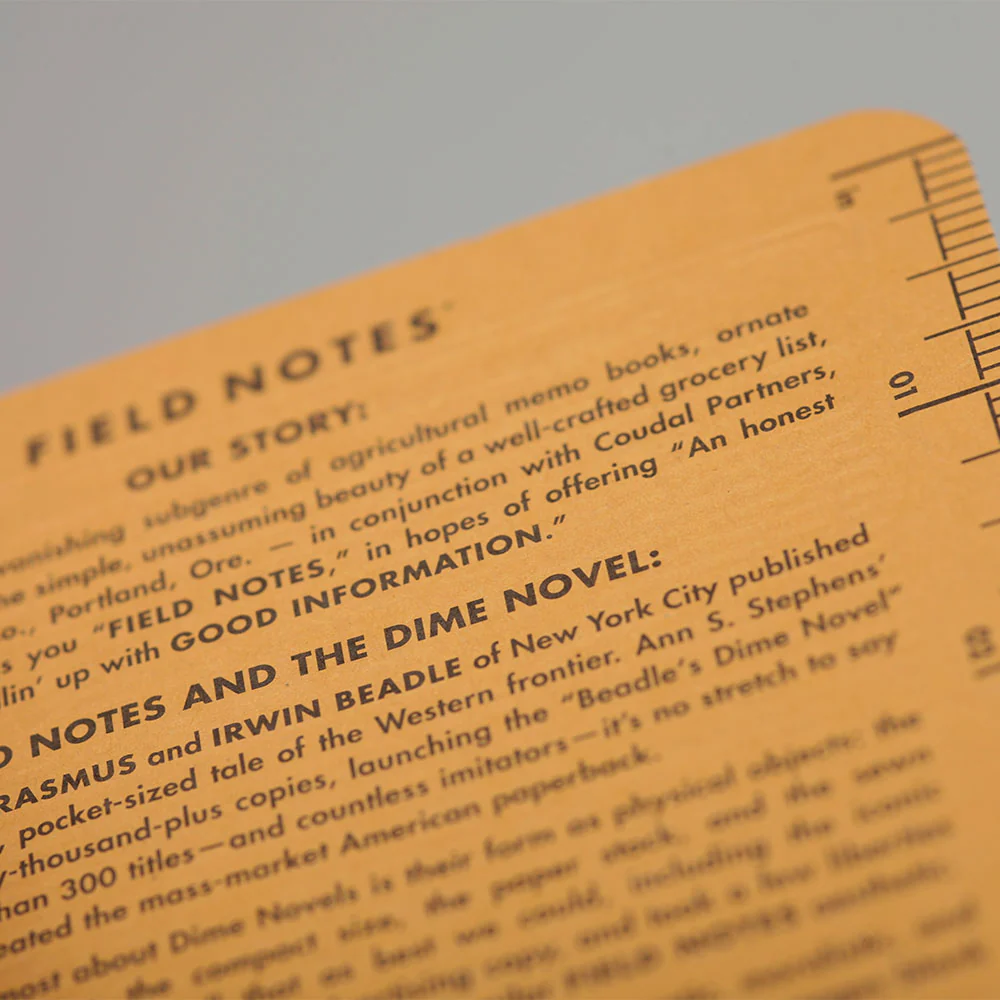 FIELD NOTES
OUR STORY:
vanishing subgenre of agricultural memo books, ornate
simple, unassuming beauty of a well-crafted grocery list,
Portland, Ore. — in conjunction with Coudal Partners,
you “FIELD NOTES,” in hopes of offering “An honest
llin’ up with GOOD INFORMATION.”
D NOTES AND THE DIME NOVEL:
RASMUS and IRWIN BEADLE of New York City published
pocket-sized tale of the Western frontier. Ann S. Stephens’
y-thousand-plus copies, launching the “Beadle’s Dime Novel”
han 300 titles—and countless imitators—it’s no stretch to say
eated the mass-market American paperback.
most about Dime Novels is their form as physical objects: the
the compact size, the paper stock, and the sewn
that as best we could, including the iconic
copy, and took a few liberties
FIELD NOTES
and
10